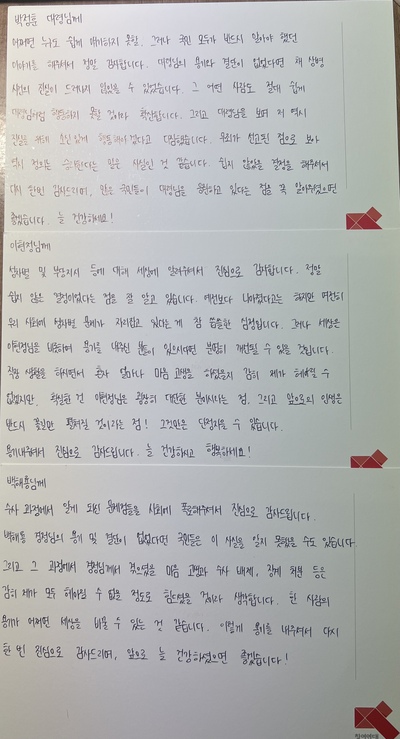 박정훈 대령님께
어쩌면 누구도 쉽게 얘기하지 못할, 그러나 국민 모두가 반드시 알아야 했던
이야기를 해주셔서 정말 감사합니다. 대령님의 용기와 결단이 없었다면 채 상병
사건의 진실이 드러나지 않았을 수 있었습니다. 그 어떤 사람도 절대 쉽게
대령님처럼 행동하지 못할 것이라 확신합니다. 그리고 대령님을 보며 저 역시
진실을 위해 소신 있게 행동해야 겠다고 다짐했습니다. 무죄가 선고된 점으로 보아
역시 정의는 승리한다는 말은 사실인 것 같습니다. 쉽지 않았을 결정을 해주셔서
다시 한번 감사드리며, 많은 국민들이 대령님을 응원하고 있다는 점을 꼭 알아주셨으면
좋겠습니다. 늘 건강하세요!
이현정님께
성차별 및 부당지시 등에 대해 세상에 알려주셔서 진심으로 감사합니다. 정말
쉽지 않은 결정이었다는 점을 잘 알고 있습니다. 예전보다 나아졌다고는 하지만 여전히
우리 사회에 성차별 문제가 자리잡고 있다는 게 참 씁쓸한 심정입니다. 그러나 세상은
이현정님을 비롯하여 용기를 내주신 분들이 있으시다면 분명히 개선될 수 있을 것입니다.
직장 생활을 하시면서 혼자 얼마나 마음 고생을 하셨을지 감히 제가 헤아릴 수
없겠지만, 확실한 건 이현정님은 굉장히 대단한 분이시라는 점, 그리고 앞으로의 인생은
반드시 꽃길만 펼쳐질 것이라는 점! 그것만은 단언할 수 있습니다.
용기내주셔서 진심으로 감사드립니다. 늘 건강하시고 행복하세요!
백해룡님께
수사 과정에서 알게 되신 문제점들을 사회에 폭로해주셔서 진심으로 감사드립니다.
백해룡 경정님의 용기 및 결단이 없었다면 국민들은 이 사실을 알지 못했을 수도 있습니다.
그리고 그 과정에서 경정님께서 겪으셨을 마음 고생과 수사 배제, 징계 처분 등은
감히 제가 모두 헤아릴 수 없을 정도로 힘드셨을 것이라 생각합니다. 한 사람의
용기가 어쩌면 세상을 바꿀 수 있는 것 같습니다. 이렇게 용기를 내주셔서 다시
한 번 진심으로 감사드리며, 앞으로 늘 건강하셨으면 좋겠습니다!
참여연대